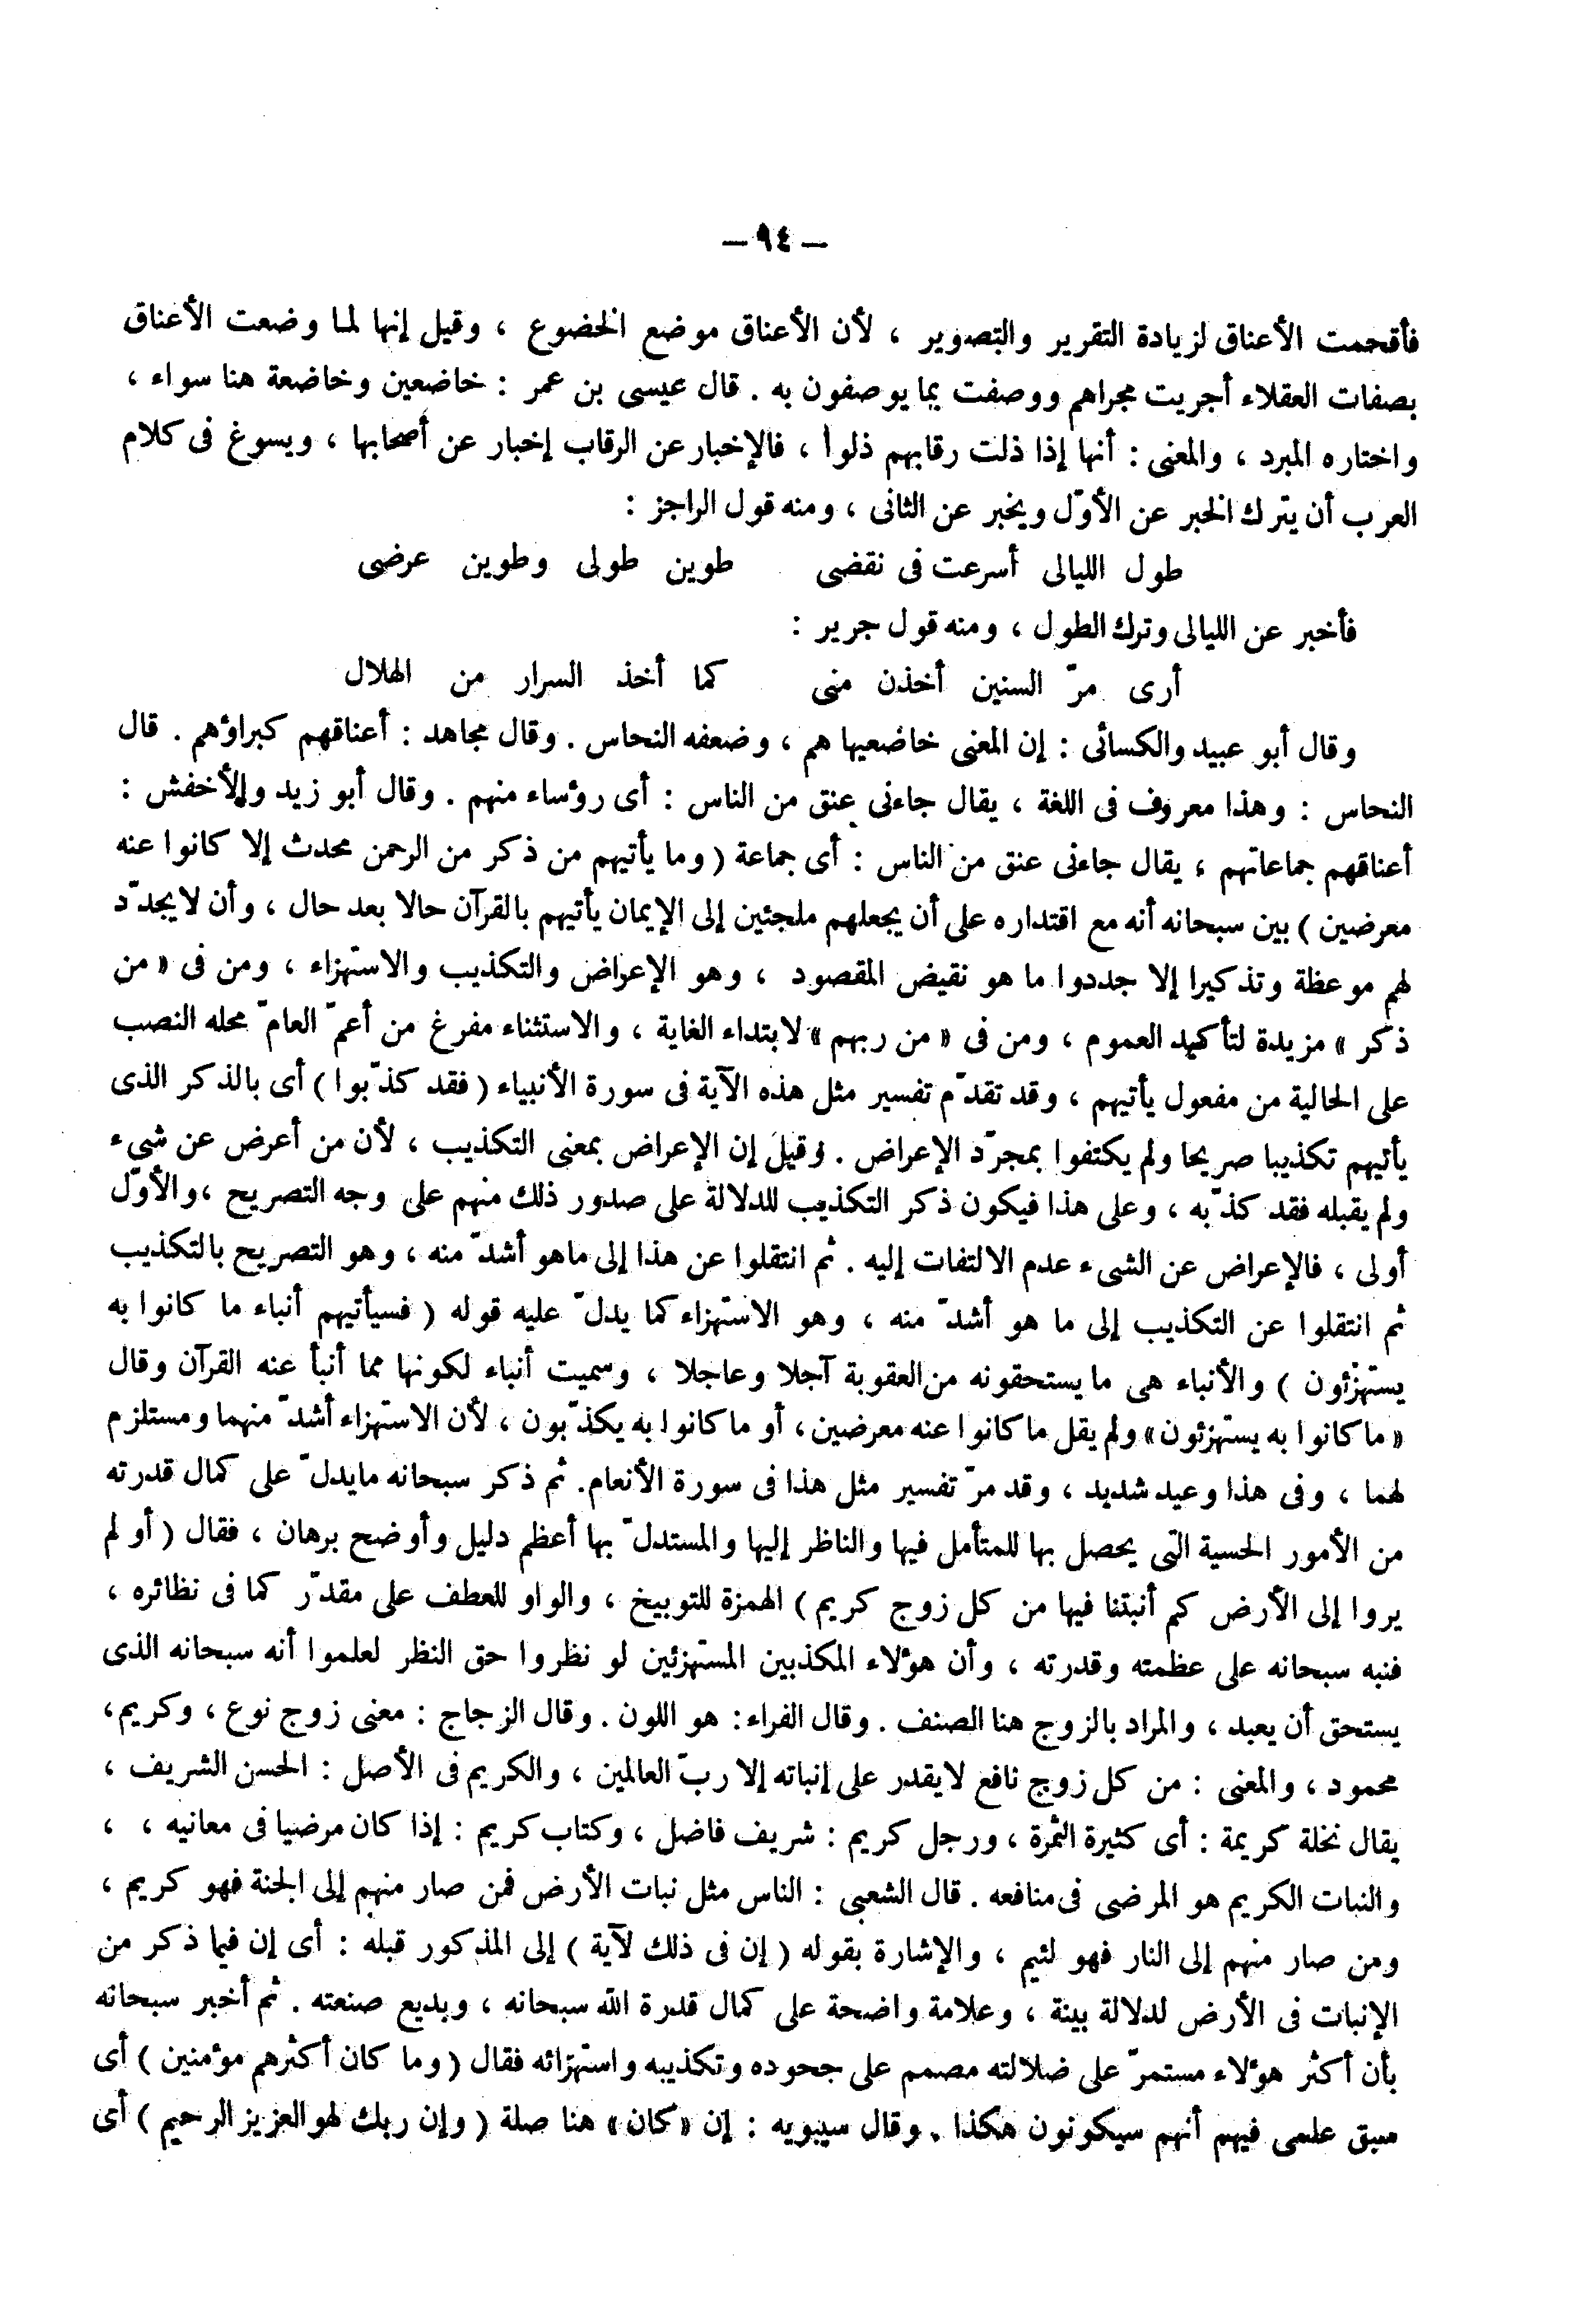 — ٩٤ —
فأقحمت الأعناق لزيادة التقرير والتصوير ، لأن الأعناق موضع الخضوع ، وقيل إنها لما وضعت الأعناق
بصفات العقلاء أجريت مجراهم ووصفت بما يوصفون به . قال عيسى بن عمر : خاضعين وخاضعة هنا سواء ،
واختاره المبرد ، والمعنى : أنها إذا ذلت رقابهم ذلوا ، فالإخبار عن الرقاب إخبار عن أصحابها ، ويسوغ فى كلام
العرب أن يترك الخبر عن الأوّل ويخبر عن الثانى ، ومنه قول الراجز :
طول الليالى أسرعت فى نقضى طوين طولى وطوين عرضى
فأخبر عن الليالى وترك الطول ، ومنه قول جرير :
أرى مرّ السنين أخذن منى كما أخذ السرار من الهلال
وقال أبو عبيد والكسائى : إن المعنى خاضعيها هم ، وضعفه النحاس . وقال مجاهد : أعناقهم كبراؤهم . قال
النحاس : وهذا معروف فى اللغة ، يقال جاءنى عنق من الناس : أى رؤساء منهم . وقال أبو زيد والأخفش :
أعناقهم جماعاتهم ، يقال جاءنى عنق من الناس : أى جماعة ( وما يأتيهم من ذكر من الرحمن محدث إلا كانوا عنه
معرضين ) بين سبحانه أنه مع اقتداره على أن يجعلهم ملجئين إلى الإيمان يأتيهم بالقرآن حالا بعد حال ، وأن لايجدّد
لهم موعظة وتذكيرا إلا جددوا ما هو نقيض المقصود ، وهو الإعراض والتكذيب والاستهزاء ، ومن فى « من
ذكر » مزيدة لتأكيد العموم ، ومن فى « من ربهم » لابتداء الغاية ، والاستثناء مفرغ من أعمّ العامّ محله النصب
على الحالية من مفعول يأتيهم ، وقد تقدّم تفسير مثل هذه الآية فى سورة الأنبياء ( فقد كذّبوا ) أى بالذكر الذى
يأتيهم تكذيبا صريحا ولم يكتفوا بمجرّد الإعراض . وقيل إن الإعراض بمعنى التكذيب ، لأن من أعرض عن شىء
ولم يقبله فقد كذّبه ، وعلى هذا فيكون ذكر التكذيب للدلالة على صدور ذلك منهم على وجه التصريح ، والأوّل
أولى ، فالإعراض عن الشىء عدم الالتفات إليه . ثم انتقلوا عن هذا إلى ماهو أشدّ منه ، وهو التصريح بالتكذيب
ثم انتقلوا عن التكذيب إلى ما هو أشدّ منه ، وهو الاستهزاء كما يدلّ عليه قوله ( فسيأتيهم أنباء ما كانوا به
يستهزئون ) والأنباء هى ما يستحقونه من العقوبة آجلا وعاجلا ، وسميت أنباء لكونها مما أنبأ عنه القرآن وقال
« ما كانوا به يستهزئون » ولم يقل ما كانوا عنه معرضين ، أو ما كانوا به يكذّبون ، لأن الاستهزاء أشدّ منهما ومستلزم
لهما ، وفى هذا وعيد شديد ، وقد مرّ تفسير مثل هذا فى سورة الأنعام . ثم ذكر سبحانه مايدلّ على كمال قدرته
من الأمور الحسية التى يحصل بها للمتأمل فيها والناظر إليها والمستدلّ بها أعظم دليل وأوضح برهان ، فقال ( أو لم
يروا إلى الأرض كم أنبتنا فيها من كل زوج كريم ) الهمزة للتوبيخ ، والواو للعطف على مقدّر كما فى نظائره ،
فنبه سبحانه على عظمته وقدرته ، وأن هؤلاء المكذبين المستهزئين لو نظروا حق النظر لعلموا أنه سبحانه الذى
يستحق أن يعبد ، والمراد بالزوج هنا الصنف . وقال الفراء : هو اللون . وقال الزجاج : معنى زوج نوع ، وكريم ،
محمود ، والمعنى : من كل زوج نافع لايقدر على إنباته إلا ربّ العالمين ، والكريم فى الأصل : الحسن الشريف ،
يقال نخلة كريمة : أى كثيرة الثمرة ، ورجل كريم : شريف فاضل ، وكتاب كريم : إذا كان مرضيا فى معانيه ، ،
والنبات الكريم هو المرضى فى منافعه . قال الشعبى : الناس مثل نبات الأرض فمن صار منهم إلى الجنة فهو كريم ،
ومن صار منهم إلى النار فهو لئيم ، والإشارة بقوله ( إن فى ذلك لآية ) إلى المذكور قبله : أى إن فيما ذكر من
الإنبات فى الأرض لدلالة بينة ، وعلامة واضحة على كمال قدرة الله سبحانه ، وبديع صنعته . ثم أخبر سبحانه
بأن أكثر هؤلاء مستمرّ على ضلالته مصمم على جحوده وتكذيبه واستهزائه فقال ( وما كان أكثرهم مؤمنين ) أى
سبق علمى فيهم أنهم سيكونون هكذا . وقال سيبويه : إن « كان » هنا صلة ( وإن ربك لهو العزيز الرحيم ) أى